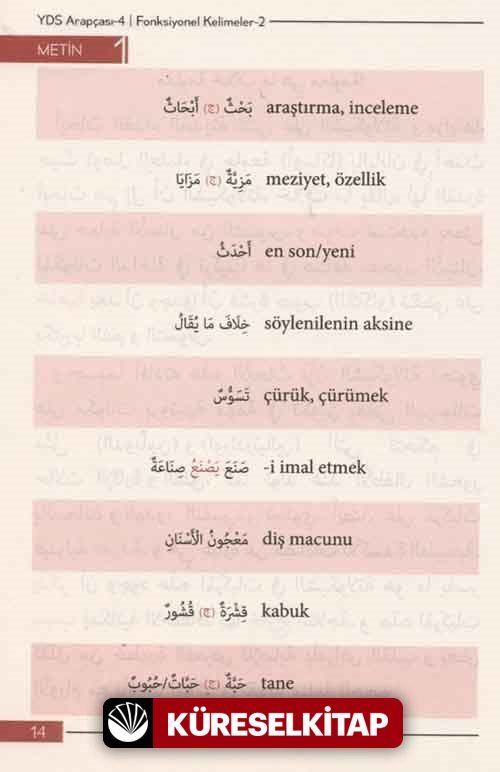 YDS Arapçası-4 | Fonksiyonel Kelimeler-2
METİN 1
بَحْثٌ (ج) أَبْحَاثٌ araştırma, inceleme
مَزِيَّةٌ (ج) مَزَايَا meziyet, özellik
أَحْدَثُ en son/yeni
خِلَافَ مَا يُقَالُ söylenilenin aksine
تَسَوُّسٌ çürük, çürümek
صَنَعَ يَصْنَعُ صِنَاعَةٌ -i imal etmek
مَعْجُونُ الْأَسْنَانِ diş macunu
قِشْرَةٌ (ج) قُشُورٌ kabuk
حَبَّةٌ (ج) حَبَّاتٌ/حُبُوبٌ tane
14
KÜRESELKİTAP